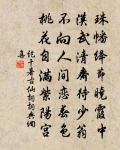 珠幡絳節曉霞中
漢武清齋待少翁
不向人間戀春色
桃花自滿紫陽宮
紇干著古仙詞詞典網